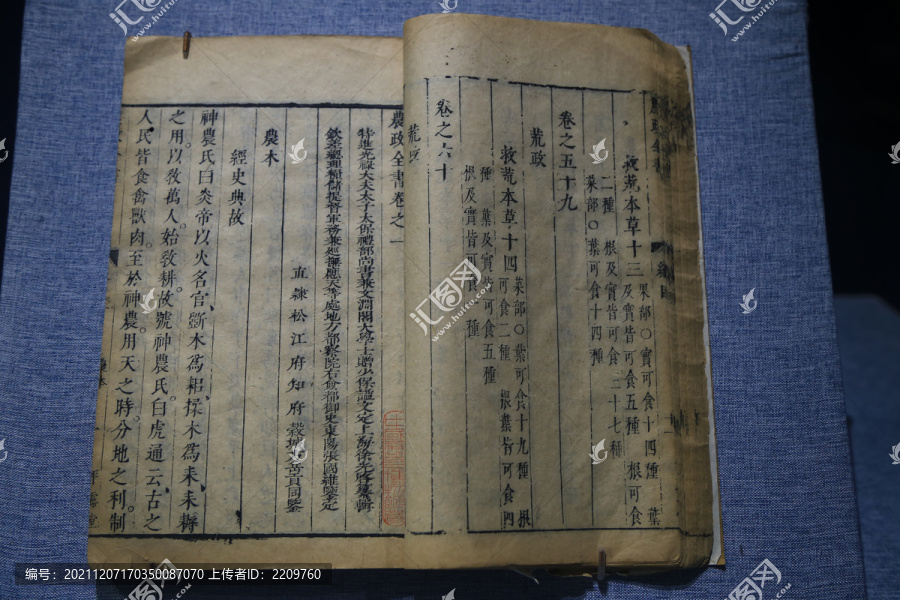 救荒本草十三 果部○實可食十四種 葉
及實皆可食五種 根可食
二種 根及實皆可食二十七種
菜部○葉可食十四種
卷之五十九
荒政
救荒本草十四 菜部○葉可食十九種 根
可食二種 根葉皆可食四
種 葉及實皆可食五種
根及實皆可食一種
卷之六十
荒政
農政全書卷之一
特進光祿大夫太子太保禮部尚書兼文淵閣大學士贈少保謚文定上海徐光啓纂輯
欽差總理糧儲提督軍務兼巡撫應天等處地方都察院右僉都御史東陽張國維鑒定
直隸松江府知府穀城方岳貢同鑒
農本
經史典故
神農氏曰炎帝以火名官、斵木爲耜揉木爲耒耒耨
之用。以敎萬人。始敎耕。故號神農氏白虎通云、古之
人民皆食禽獸肉。至於神農。用天之時。分地之利。制
编号：20211207170350087070 上传者ID：2209760
汇图网
www.huitu.com